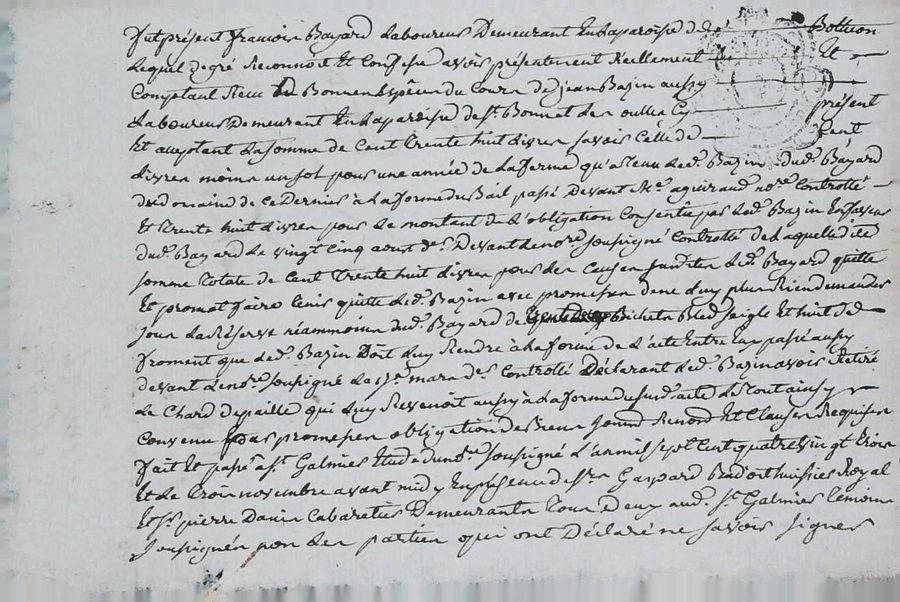 fut présent francois Bayard Laboureur Demeurant En La paroisse de Bottieon
Lequel de gré Reconnoit Et Confesse avoir présentement Réellement Et
Comptant Receu En Bonnes Espèces du Cours de jean Bazin aussy
Laboureur Demeurant En La paroisse de St. Bonnet Les oulles Cy présent
Et aceptant La somme de Cent trente huit Livres savoir Celle de Cent
Livres moins un sol pour une année de La ferme qu'a tenu Led. Bazin dud. Bayard
du domaine de Ce Dernier à La forme du Bail passé Devant Me. aguiraud nore. Controllé
Et trente huit Livres pour Le montant de L'obligation Consentie par Led. Bazin En faveur
dud. Bayard Le vingt Cinq aout dr. Devant Le nore. soussigné Controllé de Laquelle de
somme totale de Cent trente huit Livres pour Les Causes susdites Led. Bayard quitte
Et promet faire tenir quitte Led. Bazin avec promesse de ne Luy plus Rien demander
sous La Réserve néammoins dud. Bayard de Bichets Bled seigle Et huit de
froment que Led. Bazin Doit Luy Rendre à La forme de L'acte Entre Eux passé aussy
devant Le nore. soussigné La mars dr. Controllé Déclarant Led. Bazin avoir Retiré
Le Chard de paille qui Luy Revenoit aussy à La forme du sud. acte Le tout ainsy
Convenu par promesses obligation de Biens soumd. Renond. Et Clauses Requises
fait Et passé à St. Galmier Etude du nore. soussigné L'an mil sept Cent quatre vingt trois
Et Le trois novembre avant midy En présence de Sr. Gaspard huissier Royal
Et Sr. pierre Danier Cabaretier Demeurants tous Deux aud. St. Galmier temoins
soussignés non Les parties qui ont Déclaré ne savoir signer